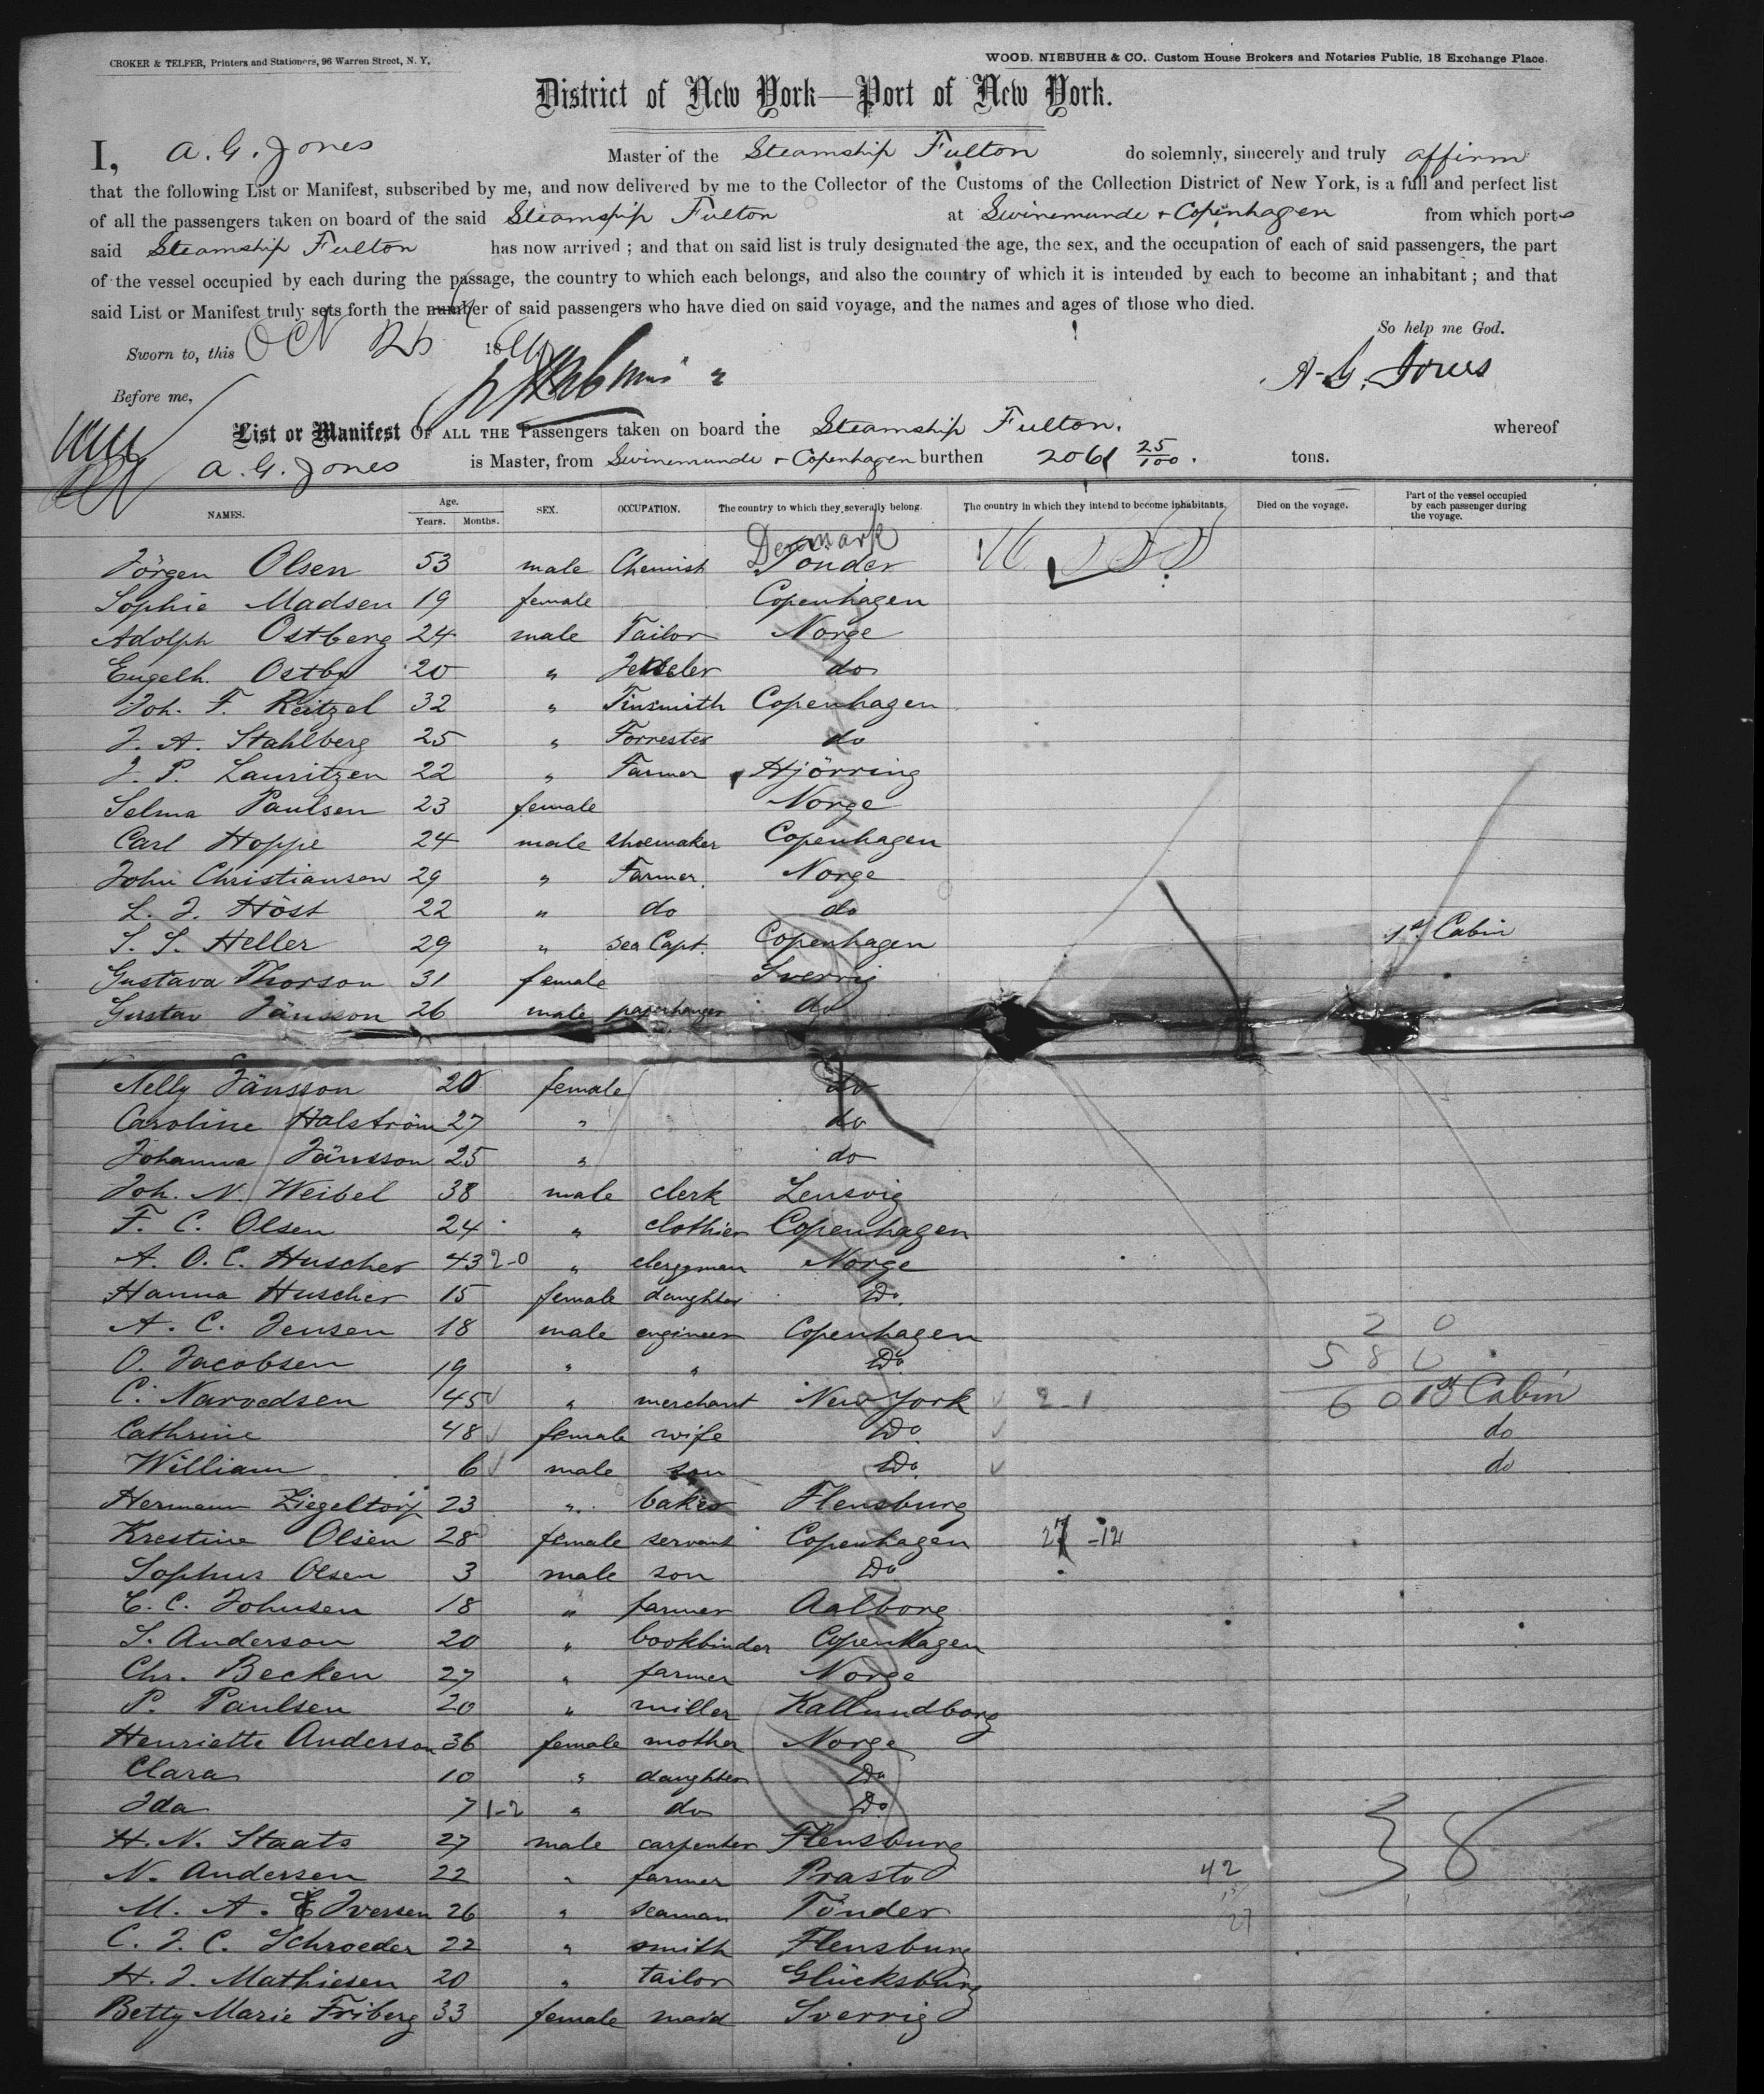 CROKER & TELFER, Printers and Stationers, 96 Warren Street, N. Y.
WOOD, NIEBUHR & CO., Custom House Brokers and Notaries Public, 18 Exchange Place.
District of New York—Port of New York.
I, A. G. Jones Master of the Steamship Fulton do solemnly, sincerely and truly affirm
that the following List or Manifest, subscribed by me, and now delivered by me to the Collector of the Customs of the Collection District of New York, is a full and perfect list
of all the passengers taken on board of the said Steamship Fulton at Swinemunde + Copenhagen from which ports
said Steamship Fulton has now arrived ; and that on said list is truly designated the age, the sex, and the occupation of each of said passengers, the part
of the vessel occupied by each during the passage, the country to which each belongs, and also the country of which it is intended by each to become an inhabitant ; and that
said List or Manifest truly sets forth the number of said passengers who have died on said voyage, and the names and ages of those who died.
So help me God.
Sworn to, this Oct 18
A. G. Jones
Before me,
List or Manifest OF ALL THE Passengers taken on board the Steamship Fulton. whereof
A. G. Jones is Master, from Swinemunde + Copenhagen burthen 2061 25/100. tons.
NAMES. Age. Years. Months. SEX. OCCUPATION. The country to which they severally belong. The country in which they intend to become inhabitants. Died on the voyage. Part of the vessel occupied by each passenger during the voyage.
Denmark
Jörgen Olsen 53 male Chemist Tonder
Sophie Madsen 19 female Copenhagen
Adolph Ostberg 24 male Tailor Norge
Engelh. Ostby 20 " Jeweler do
Joh. F. Reitzel 32 " Tinsmith Copenhagen
J. A. Stahlberg 25 " Forrester do
J. P. Lauritzen 22 " Farmer Hjörring
Selma Paulsen 23 female Norge
Carl Hoppe 24 male shoemaker Copenhagen
John Christiansen 29 " Farmer. Norge
L. J. Höst 22 " do do
S. S. Heller 29 " sea Capt. Copenhagen 1st Cabin
Gustava Thorson 31 female Sverrig
Gustav Jänsson 26 male paperhanger do
Nelly Jänsson 20 female do
Caroline Halström 27 " do
Johanna Jänsson 25 " do
Joh. N. Weibel 38 male clerk Lensvig
F. C. Olsen 24 " clothier Copenhagen
A. O. C. Huscher 43 2-0 " clergyman Norge
Hanna Huscher 15 female daughter Do.
A. C. Jensen 18 male engineer Copenhagen 2 0
O. Jacobsen 19 " " Do 5 8 0
C. Narvedsen 45 " merchant New York 2-1 6 0 1st Cabin
Cathrine 48 female wife Do. do
William 6 male son Do. do
Hermann Ziegeltorf 23 " baker Flensburg
Krestine Olsen 28 female servant Copenhagen 27 -12
Sophus Olsen 3 male son Do
C. C. Johnsen 18 " farmer Aalborg
S. Anderson 20 " bookbinder Copenhagen
Chr. Becken 27 " farmer Norge
P. Paulsen 20 " miller Kallundborg
Henriette Anderson 36 female mother Norge
Clara 10 " daughter Do
Ida 7 1-2 " do Do.
H. N. Staats 27 male carpenter Flensburg 38
N. Andersen 22 " farmer Prasto 42
M. A. E Iversen 26 " seaman Tönder 27
C. J. C. Schroeder 22 " smith Flensburg
H. J. Mathiesen 20 " tailor Glücksburg
Betty Marie Friberg 33 female maid Sverrig